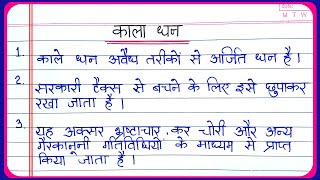 Date:
M T W
काला धन
1. काले धन अवैध तरीकों से अर्जित धन है।
2. सरकारी टैक्स से बचने के लिए इसे छुपाकर
रखा जाता है।
3. यह अक्सर भ्रष्टाचार, कर चोरी और अन्य
गैरकानूनी गतिविधियों के माध्यम से प्राप्त
किया जाता है।